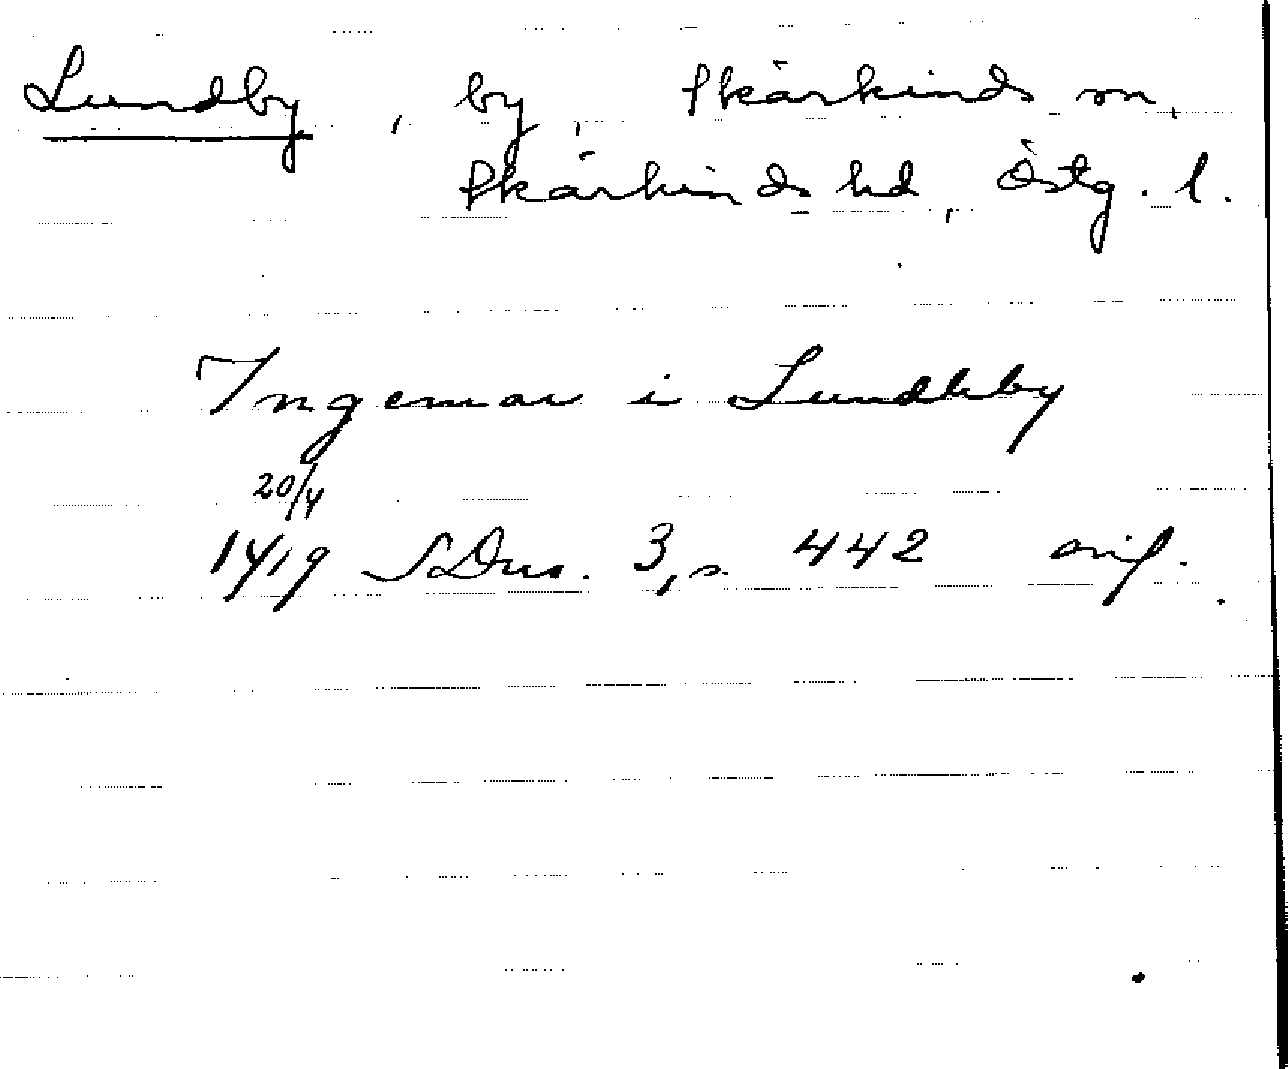 Lundby, by, Skärkinds sn,
Skärkinds hd, Östg. l.
Ingemar i Lundeby
20/4
1419 SDns. 3, s. 442 orig.